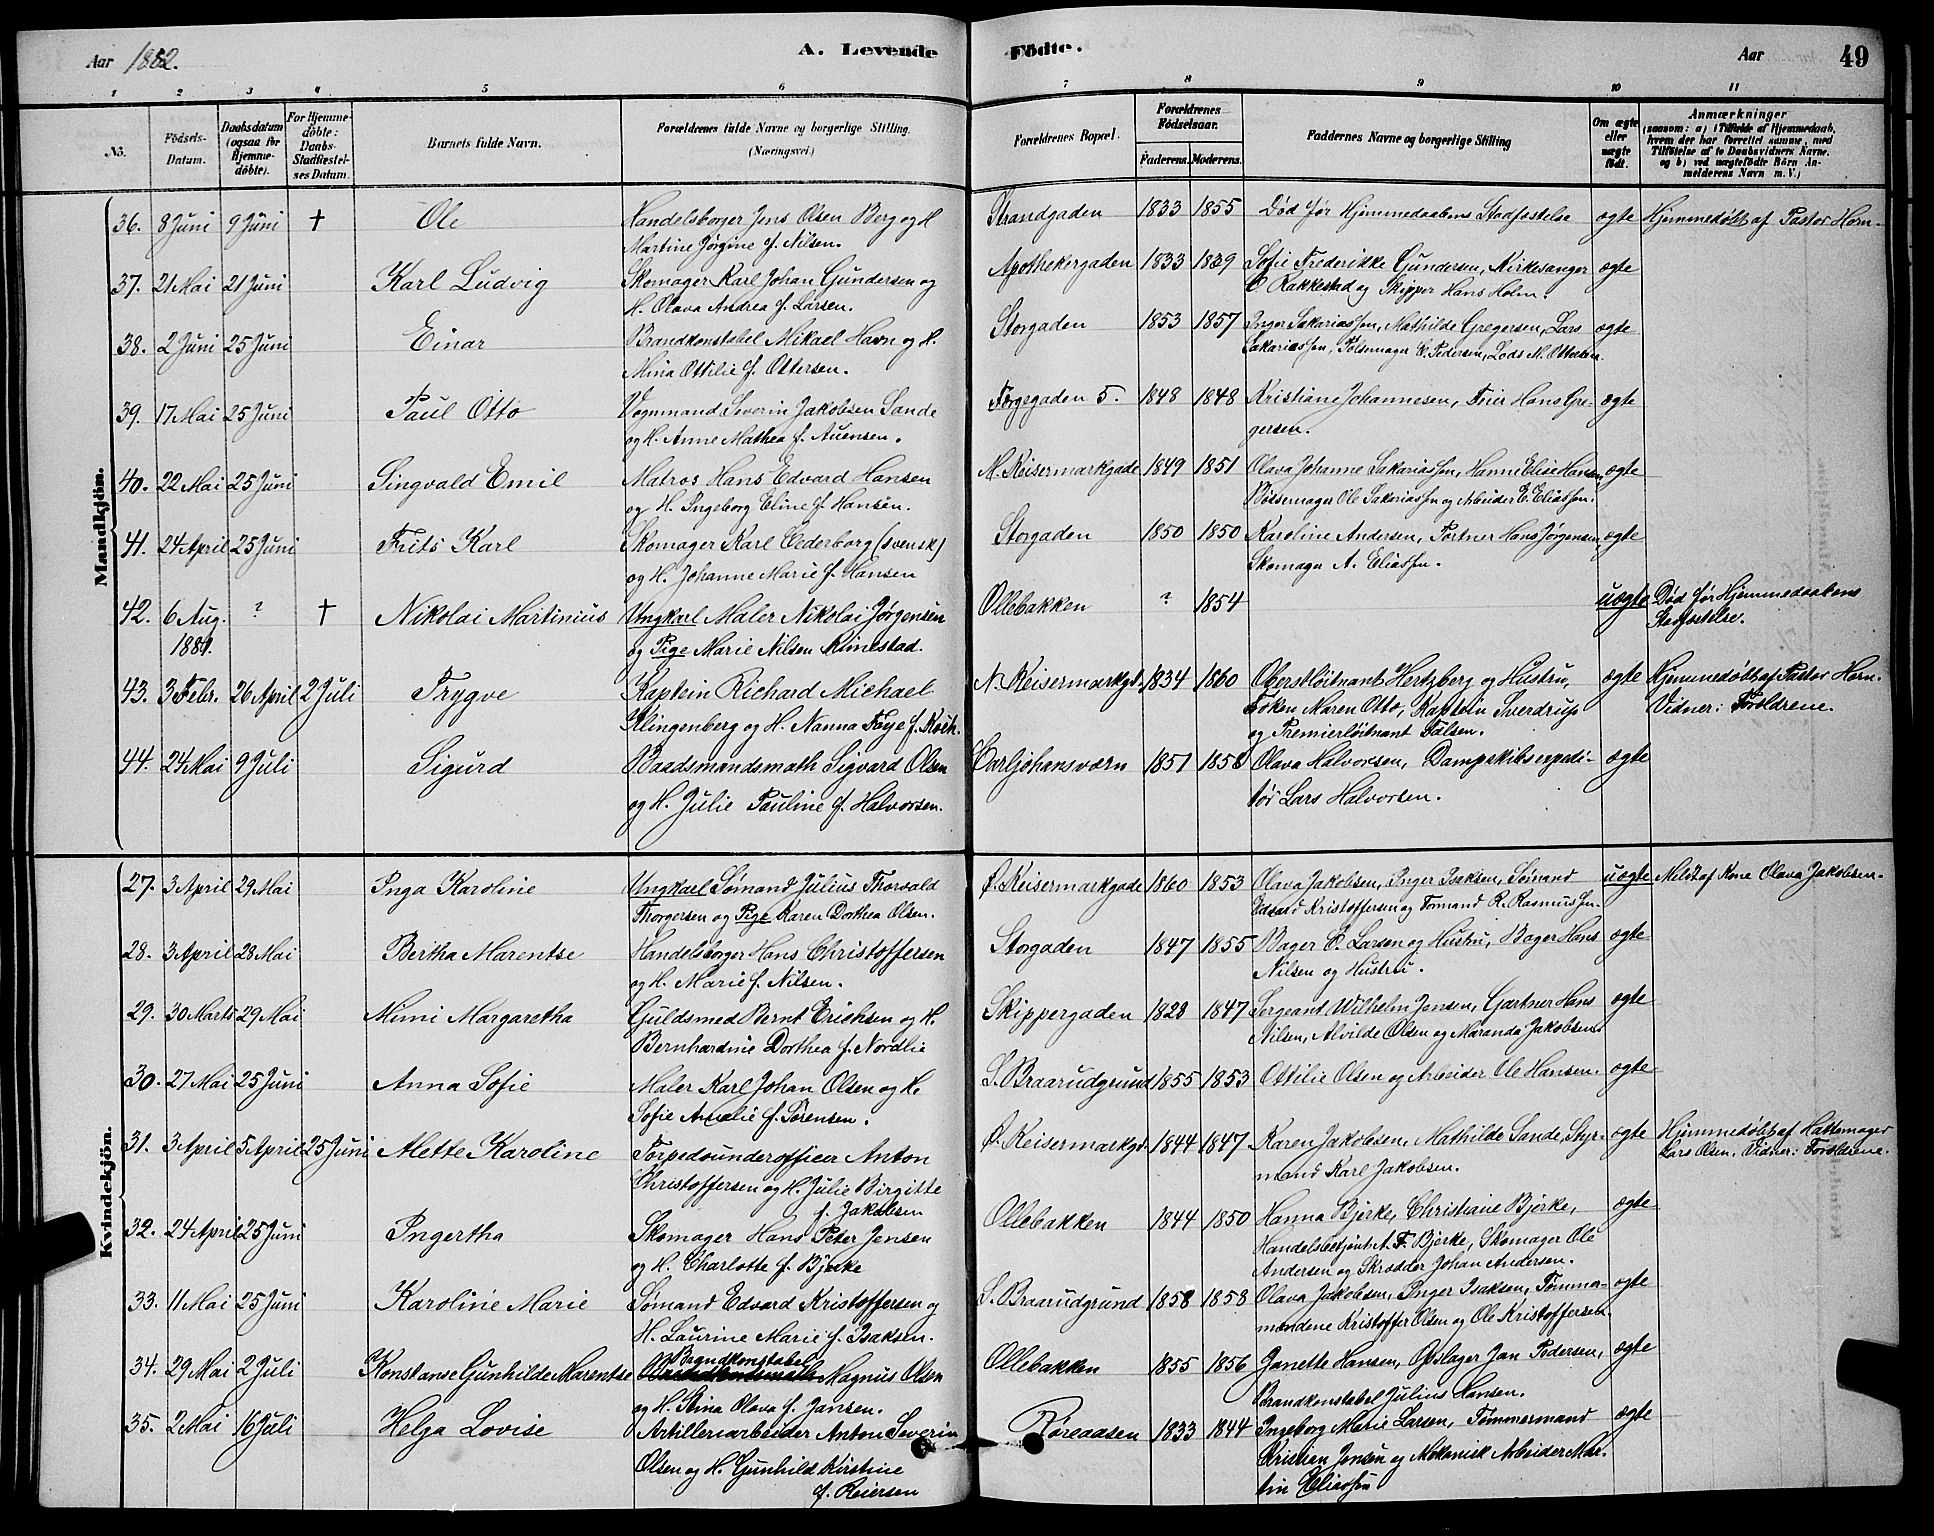 Aar 1882. A. Levende Födte. Aar 49
1 2 3 4 5 6 7 8 9 10 11
No. Födsels-Datum. Daabsdatum (ogsaa för Hjemmedöbte). For Hjemmedöbte: Daabs-Stadfæstelses Datum. Barnets fulde Navn. Forældrenes fulde Navne og borgerlige Stilling. (Næringsvei.) Forældrenes Bopæl. Forældrenes Födselsaar. Faderens. Moderens. Faddernes Navne og borgerlige Stilling Om ægte eller uægte födt. Anmærkninger (saasom: a) i Tilfælde af Hjemmedaab, hvem der har forrettet samme, med Tilföielse af to Daabsvidners Navne, og b) ved uægtefödte Börn Anmelderens Navn m. V.)
Mandkjön.
36. 8 Juni 9 Juni † Ole Handelsborger Jens Olsen Berg og H Strandgaden 1833 1855 Död för Hjemmedaabens Stadfestelse ægte Hjemmedøbt af Pastor Horn.
Martine Jørgine f. Nilsen.
37. 21 Mai 21 Juni Karl Ludvig Skomager Karl Johan Gundersen og Apothekergaden 1833 1839 Sofie Frederikke Gundersen, Kirkesanger ægte
H. Olava Andrea f. Larsen. C. Rakkestad og Skipper Hans Holm.
38. 2 Juni 25 Juni Einar Brandkonstabel Mikael Havn og H. Storgaden 1853 1857 Inger Sakariassen, Mathilde Gregersen, Lars ægte
Mina Ottilie f. Ottersen. Sakariassen, Pølsemager C. Pedersen, Lods M. Ottersen
39. 17 Mai 25 Juni Paul Otto Vognmand Severin Jakobsen Sande Færgegaden 5. 1848 1848 Kristiane Johannesen, Feier Hans Gre- ægte
og H. Anne Mathea f. Auensen. gersen.
40. 22 Mai 25 Juni Singvald Emil Matros Hans Edvard Hansen M. Keisermarkgade 1849 1851 Olava Johanne Sakariassen, Hanne Elise Hansen ægte
og H. Ingeborg Eline f. Hansen. Bøssemager Ole Sakariassen og Arbeider E. Eliassen.
41. 24 April 25 Juni Frits Karl Skomager Karl Cederborg (svensk) Storgaden 1850 1850 Karoline Andersen, Portner Hans Jørgensen, ægte
og H. Johanne Marie f. Hansen Skomager A. Eliassen.
42. 6 Aug. ? † Nikolai Martinius Ungkarl Maler Nikolai Jørgensen Ollebakken ? 1854 uægte Død før Hjemmedaabens
1881. og Pige Marie Nilsen Rimestad. Stadfestelse.
43. 3 Febr. 26 April 2 Juli Trygve Kaptein Richard Michael N. Keisermarkgd. 1834 1860 Oberstløitnant Hertzberg og Hustru, ægte Hjemmedøbt af Pastor Horn.
Klingenberg og H. Nanna Føye f. Koch. Frøken Maren Otto, Kaptein Sverdrup Vidner: Forældrene.
og Premierløitnant Falsen.
44. 24 Mai 9 Juli Sigurd Baadsmandsmath Sigvard Olsen Carljohansværn 1851 1858 Olava Halvorsen, Dampskibsexpedi- ægte
og H. Julie Pauline f. Halvorsen. tør Lars Halvorsen.
Kvindekjön.
27. 3 April 29 Mai Inga Karoline Ungkarl Sømand Julius Thorvald Ø. Keisermarkgade 1860 1853 Olava Jakobsen, Inger Isaksen, Sømand uægte Meldt af Kone Olava Jakobsen.
Thorgersen og Pige Karen Dorthea Olsen. Edvard Kristoffersen og Formand R. Rasmussen.
28. 3 April 28 Mai Bertha Marentse Handelsborger Hans Christoffersen Storgaden 1847 1855 Bager C. Larsen og Hustru, Bager Hans ægte
og H. Marie f. Nilsen. Nilsen og Hustru.
29. 30 Marts 29 Mai Mimi Margaretha Guldsmed Bernt Erichsen og H. Skippergaden 1828 1847 Sergeant Wilhelm Jensen, Gartner Hans ægte
Bernhardine Dorthea f. Nordlie Nilsen, Alvilde Olsen og Maranda Jakobsen.
30. 27 Mai 25 Juni Anna Sofie Maler Karl Johan Olsen og H. S. Braarudgrund 1855 1853 Ottilie Olsen og Arbeider Ole Hansen. ægte
Sofie Amalie f. Sørensen.
31. 3 April 5 April 25 Juni Alette Karoline Torpedounderofficer Anton Ø. Keisermarkgd. 1844 1847 Karen Jakobsen, Mathilde Sande, Styr- ægte Hjemmedøbt af Hattemager
Christoffersen og H. Julie Birgitte mand Karl Jakobsen. Lars Olsen. Vidner: Forældrene.
f. Jakobsen
32. 24 April 25 Juni Ingertha Skomager Hans Peter Jensen Ollebakken 1844 1850 Hanna Bjerke, Christiane Bjerke, ægte
og H. Charlotte f. Bjerke Handelsbetjent A. F. Bjerke, Skomager Ole
Andersen og Skrædder Johan Andersen.
33. 11 Mai 25 Juni Karoline Marie Sømand Edvard Kristoffersen og S. Braarudgrund 1858 1858 Olava Jakobsen, Inger Isaksen, Tømmer- ægte
H. Laurine Marie f. Isaksen. mændene Kristoffer Olsen og Ole Kristoffersen.
34. 29 Mai 2 Juli Konstanse Gunhilde Marentse Brandkonstabel Magnus Olsen Ollebakken 1855 1856 Janette Hansen, Opslager Jan Pedersen, ægte
og H. Stina Olava f. Jansen. Brandkonstabel Julius Hansen.
35. 2 Mai 16 Juli Helga Lovise Artilleriarbeider Anton Severin Røreaasen 1833 1844 Ingeborg Marie Larsen, Tømmermand ægte
Olsen og H. Gunhild Kirstine Kristian Jensen og Mekanisk Arbeider Mar-
f. Reiersen tin Eliassen